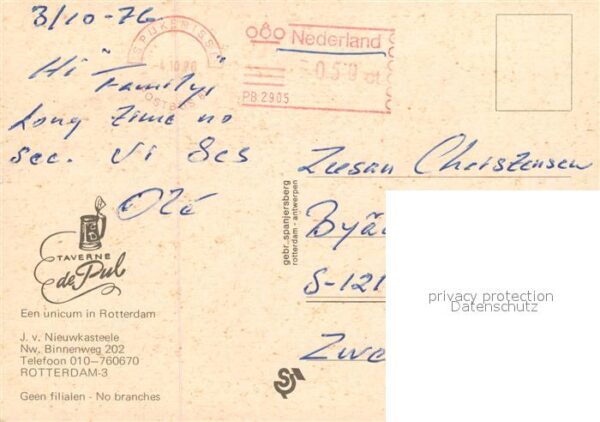 3/10-76
Hi "Family"
Long time no
see. Vi Ses
Olé
SPIJKENISSE
-4.10.76
POSTBUS
Nederland
050 ct
PB 2905
gebr. spanjersberg
rotterdam - antwerpen
TAVERNE
de Pul
Een unicum in Rotterdam
J. v. Nieuwkasteele
Nw. Binnenweg 202
Telefoon 010-760670
ROTTERDAM-3
Geen filialen - No branches
Christensen
Byä
S-121
Zwe
privacy protection
Datenschutz